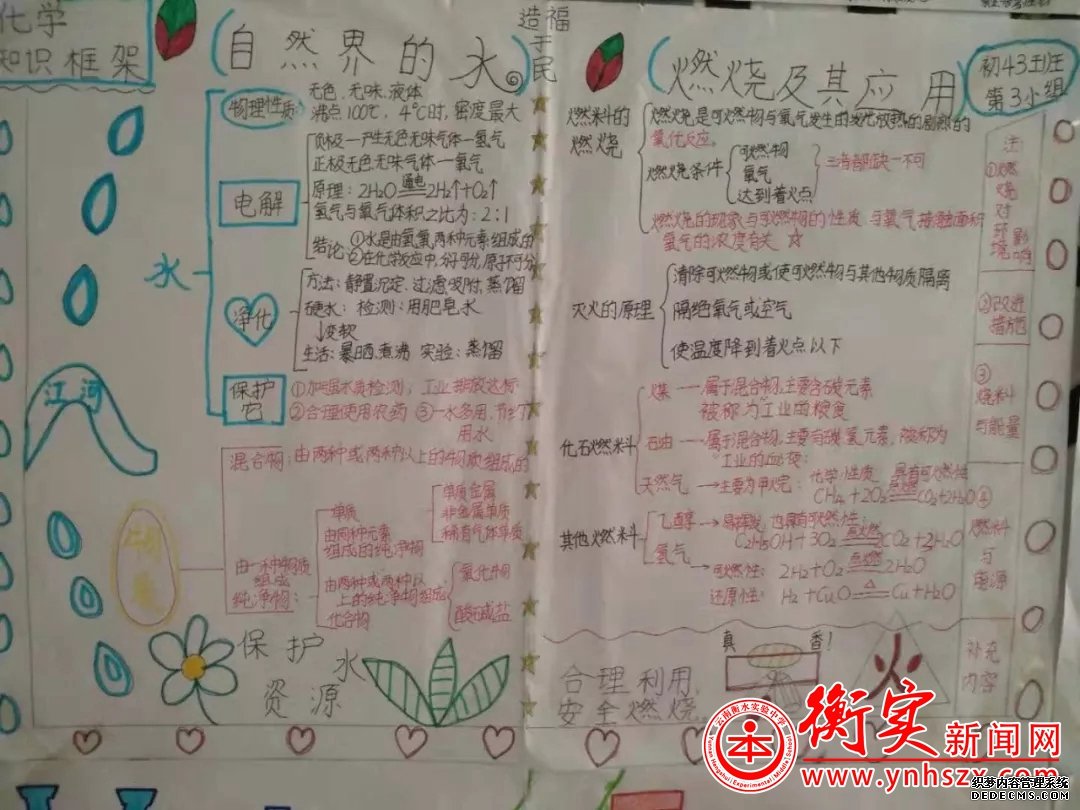 化学
知识框架
自然界的水
造福
于民
燃烧及其应用
初43班
第3小组
水
物理性质
无色、无味、液体
沸点100℃, 4℃时, 密度最大
电解
负极—产生无色无味气体—氢气
正极无色无味气体—氧气
原理: 2H₂O 通电 2H₂↑+O₂↑
氢气与氧气体积之比为: 2:1
结论: ①水是由氢氧两种元素组成的
②在化学反应中, 分子可分, 原子不可分
净化
方法: 静置沉定、过滤、吸附、蒸馏
硬水: 检测: 用肥皂水
↓变软
生活: 暴晒、煮沸 实验: 蒸馏
保护
它
①加强水质检测, 工业排放达标
②合理使用农药 ③一水多用, 节约
用水
江河
混合物: 由两种或两种以上的物质组成的
由一种物质
组成
纯净物:
单质
由同种元素
组成的纯净物
单质金属
非金属单质
稀有气体单质
由两种或两种以
上的纯净物组成
化合物
氧化物
酸碱盐
保护水
资源
燃料的
燃烧
燃烧是可燃物与氧气发生的发光放热的剧烈的
氧化反应。
燃烧条件
可燃物
氧气
达到着火点
三者都缺一不可
燃烧的现象与可燃物的性质、与氧气接触面积
氧气的浓度有关 ☆
灭火的原理
清除可燃物或使可燃物与其他物质隔离
隔绝氧气或空气
使温度降到着火点以下
化石燃料
煤 — 属于混合物, 主要含碳元素
被称为"工业的粮食"
石油 → 属于混合物, 主要有碳、氢元素, 被称为
"工业的血液"
天然气 → 主要为甲烷: 化学性质 具有可燃性
CH₄+2O₂ 点燃 CO₂+2H₂O
其他燃料
乙醇 → 易挥发, 也具有可燃性:
C₂H₅OH+3O₂ 点燃 2CO₂+3H₂O
氢气 → 可燃性: 2H₂+O₂ 点燃 2H₂O
还原性: H₂+CuO △ Cu+H₂O
注
①燃烧对环境影响
②改进
措施
③
燃料
与能量
④
燃料
与
电源
补充
内容
合理利用,
安全燃烧
真
香!
火
云南衡水实验中学
Yunnan Hengshui Experimental Middle School
衡实新闻网
www.ynhszx.com
织梦内容管理系统
DEDECMS.COM